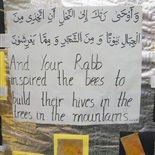 وَأَوْحَى رَبُّكَ إِلَى النَّحْلِ أَنِ اتَّخِذِي مِنَ
الْجِبَالِ بُيُوتًا وَ مِنَ الشَّجَرِ وَ مِمَّا يَعْرِشُونَ
And Your Rabb
inspired the bees to
build their hives in the
trees in the mountains....